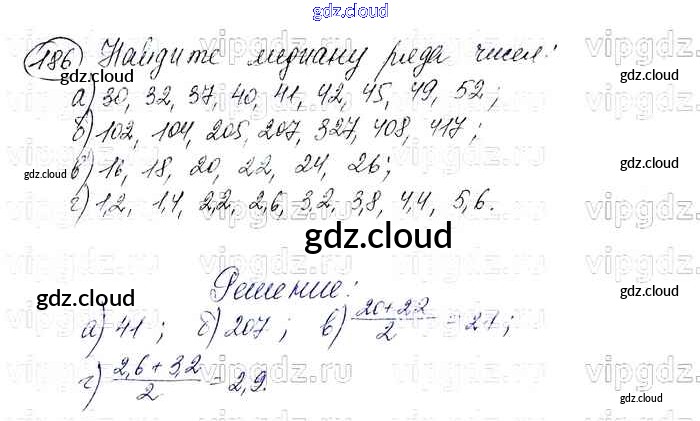 gdz.cloud
186 Найдите медиану ряда чисел:
vipgdz
а) 30, 32, 37, 40, 41, 42, 45, 49, 52;
gdz.cloud gdz.cloud gdz.cloud
б) 102, 104, 205, 207, 327, 408, 417;
gdz.cloud в) 16, 18, 20, 22, 24, 26; gdz.cloud
г) 1,2, 1,4, 2,2, 2,6, 3,2, 3,8, 4,4, 5,6.
gdz.cloud
Решение:
gdz.cloud gdz.cloud
а) 41; б) 207; в) (20+22)/2 = 21;
г) (2,6+3,2)/2 = 2,9.
gdz.cloud